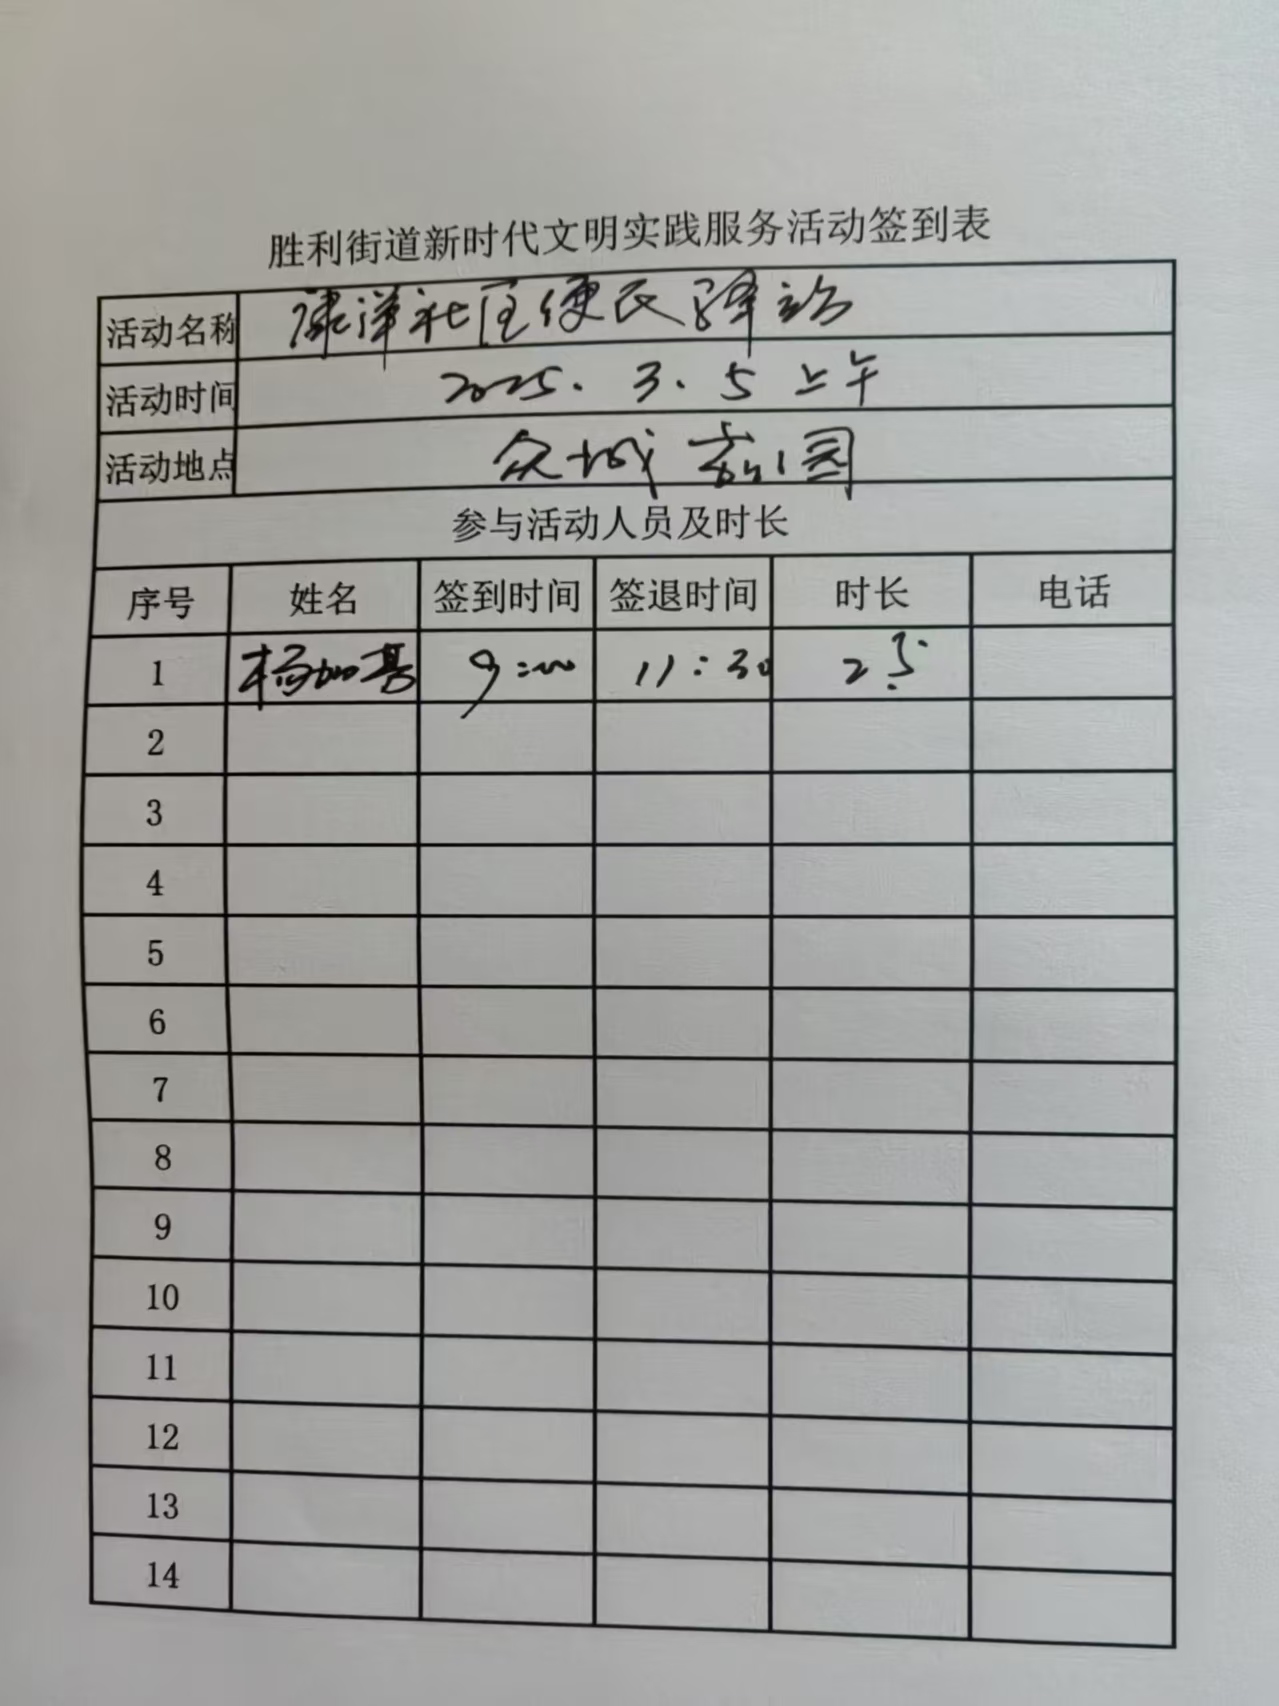 胜利街道新时代文明实践服务活动签到表
活动名称 康洋社区便民驿站
活动时间 2025.3.5上午
活动地点 众城 园
参与活动人员及时长
序号 姓名 签到时间 签退时间 时长 电话
1 杨加基 9:00 11:30 2.5
2
3
4
5
6
7
8
9
10
11
12
13
14